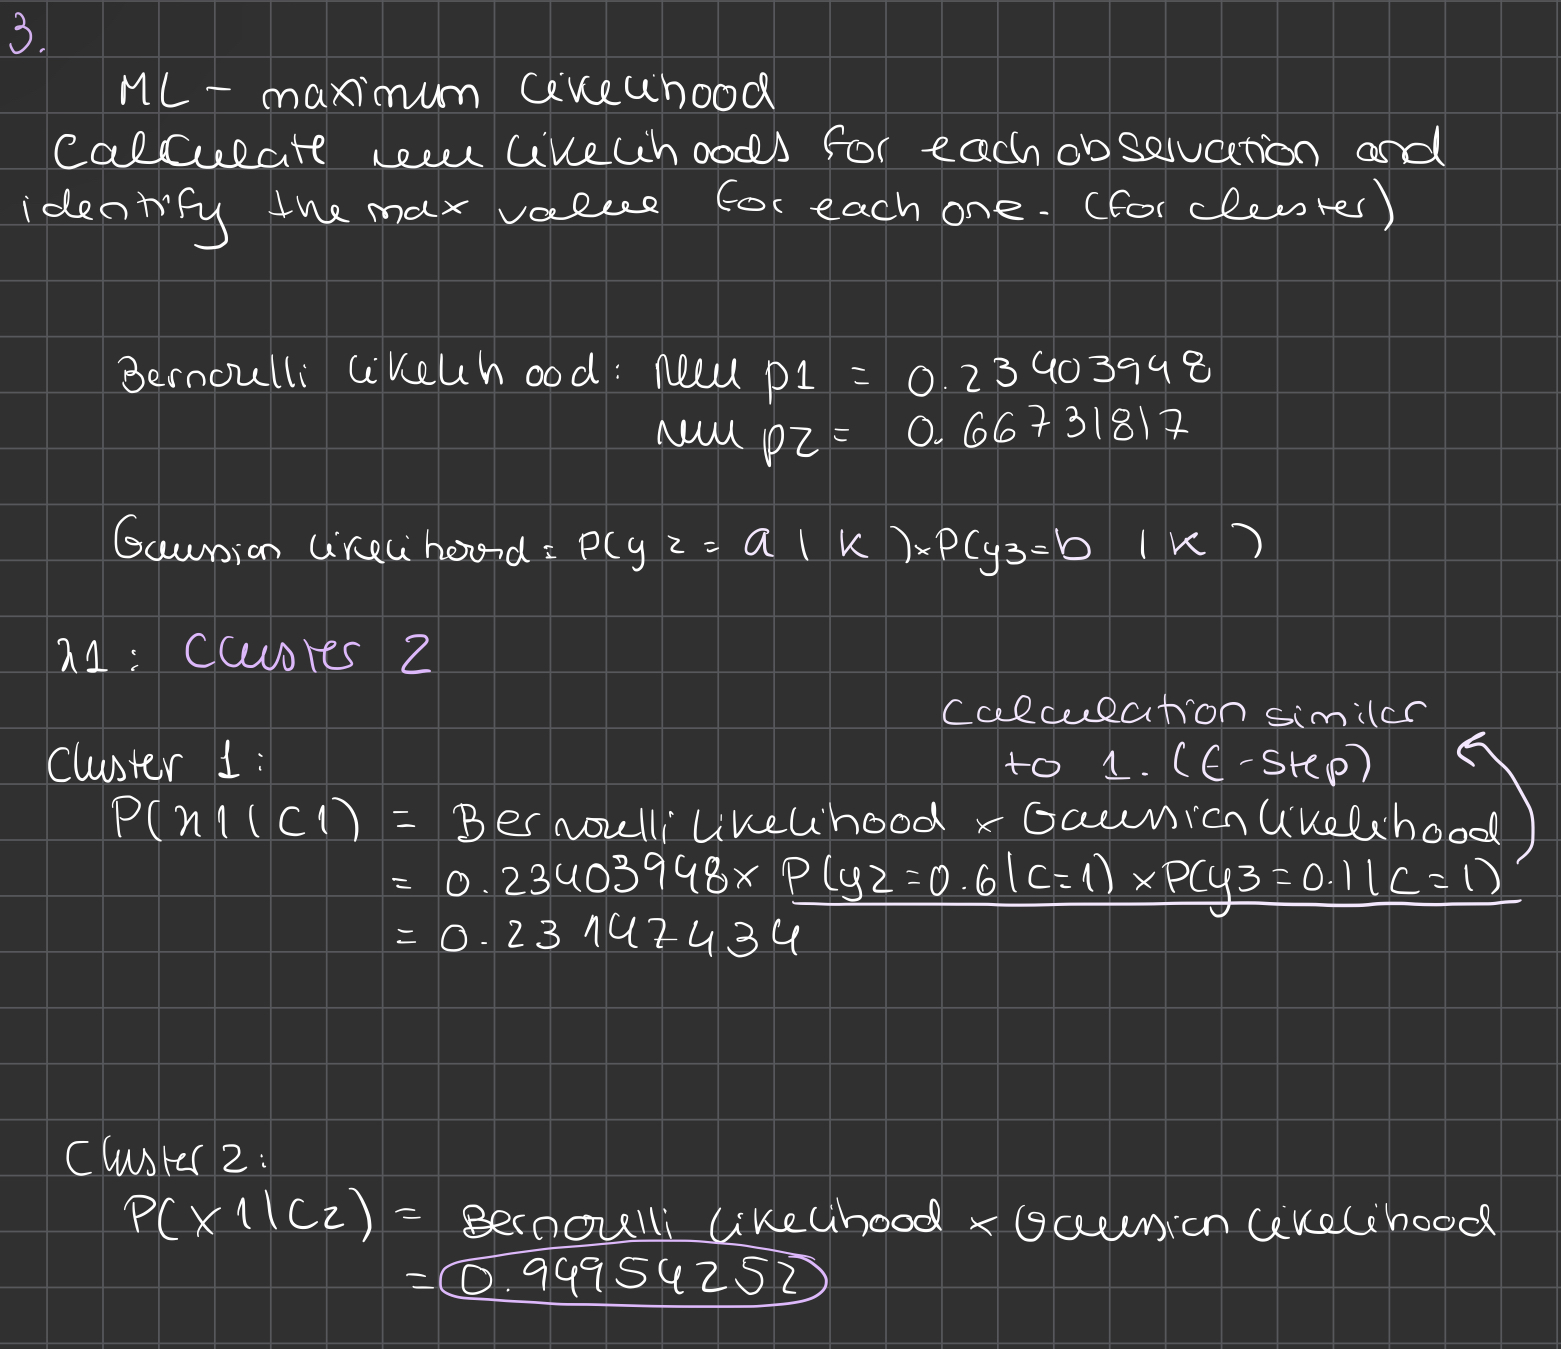 3.
ML - maximum likelihood
Calculate new likelihoods for each observation and
identify the max value for each one. (for cluster)
Bernoulli likelihood: New p1 = 0.23403948
New p2 = 0.66731817
Gaussian likelihood: P(y2 = a | k) × P(y3 = b | k)
x1: Cluster 2
Calculation similar
to 1. (E-step)
Cluster 1:
P(x1 | C1) = Bernoulli likelihood × Gaussian likelihood
= 0.23403948 × P(y2 = 0.6 | C=1) × P(y3 = 0.1 | C = 1)
= 0.23147434
Cluster 2:
P(x1 | C2) = Bernoulli likelihood × Gaussian likelihood
= 0.94954252